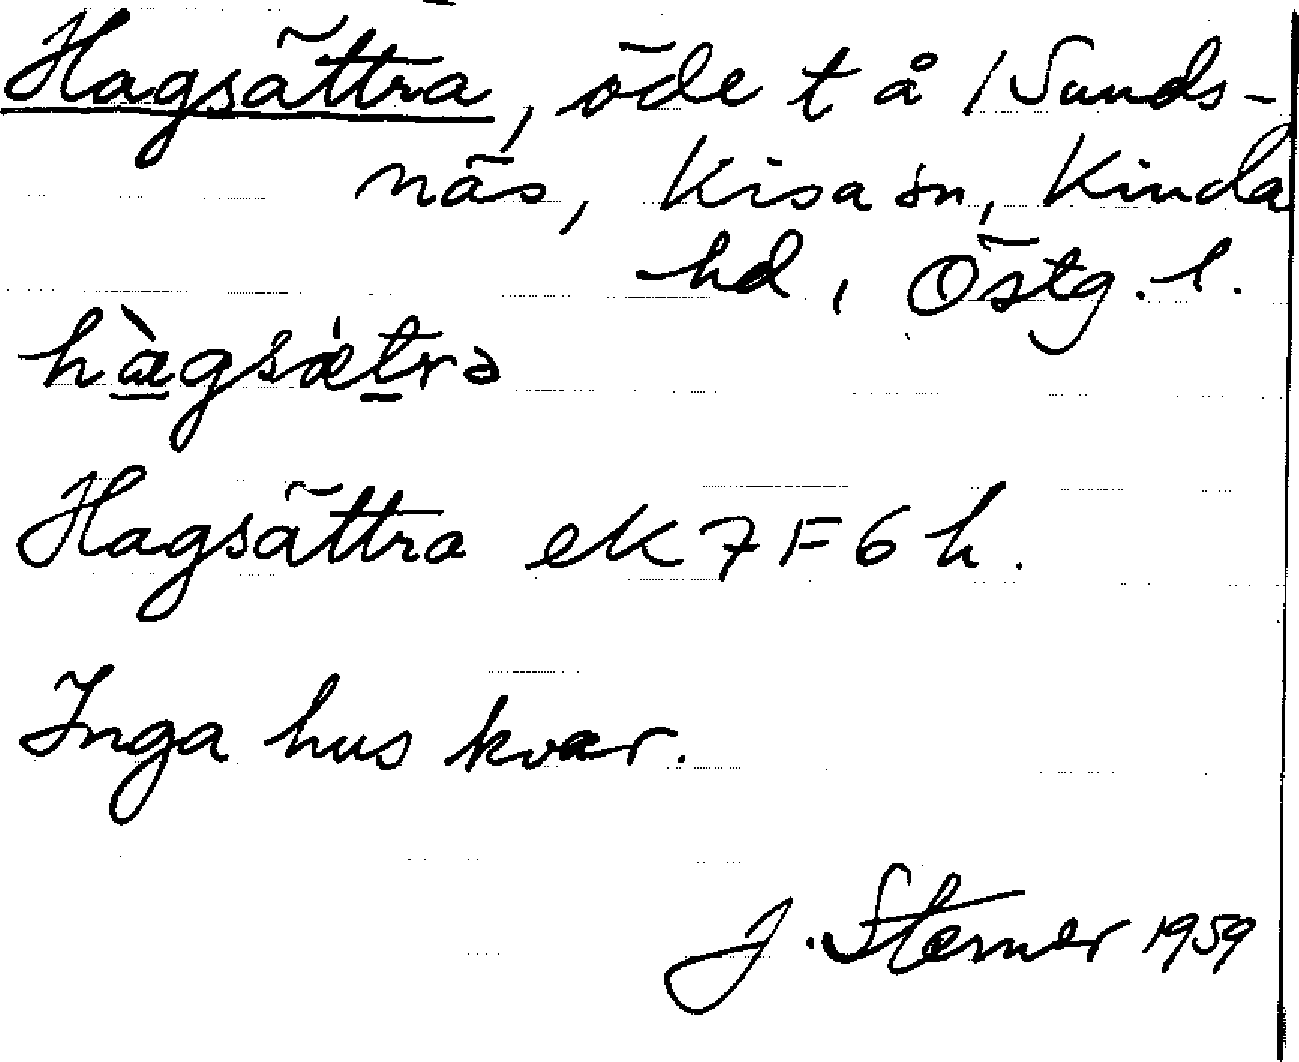 Hagsättra, öde t å 1 Sunds-
näs, Kisa sn, Kinda
hd, Östg. l.
hàgsätrə
Hagsättra ek 7F6h.
Inga hus kvar.
J. Sterner 1959